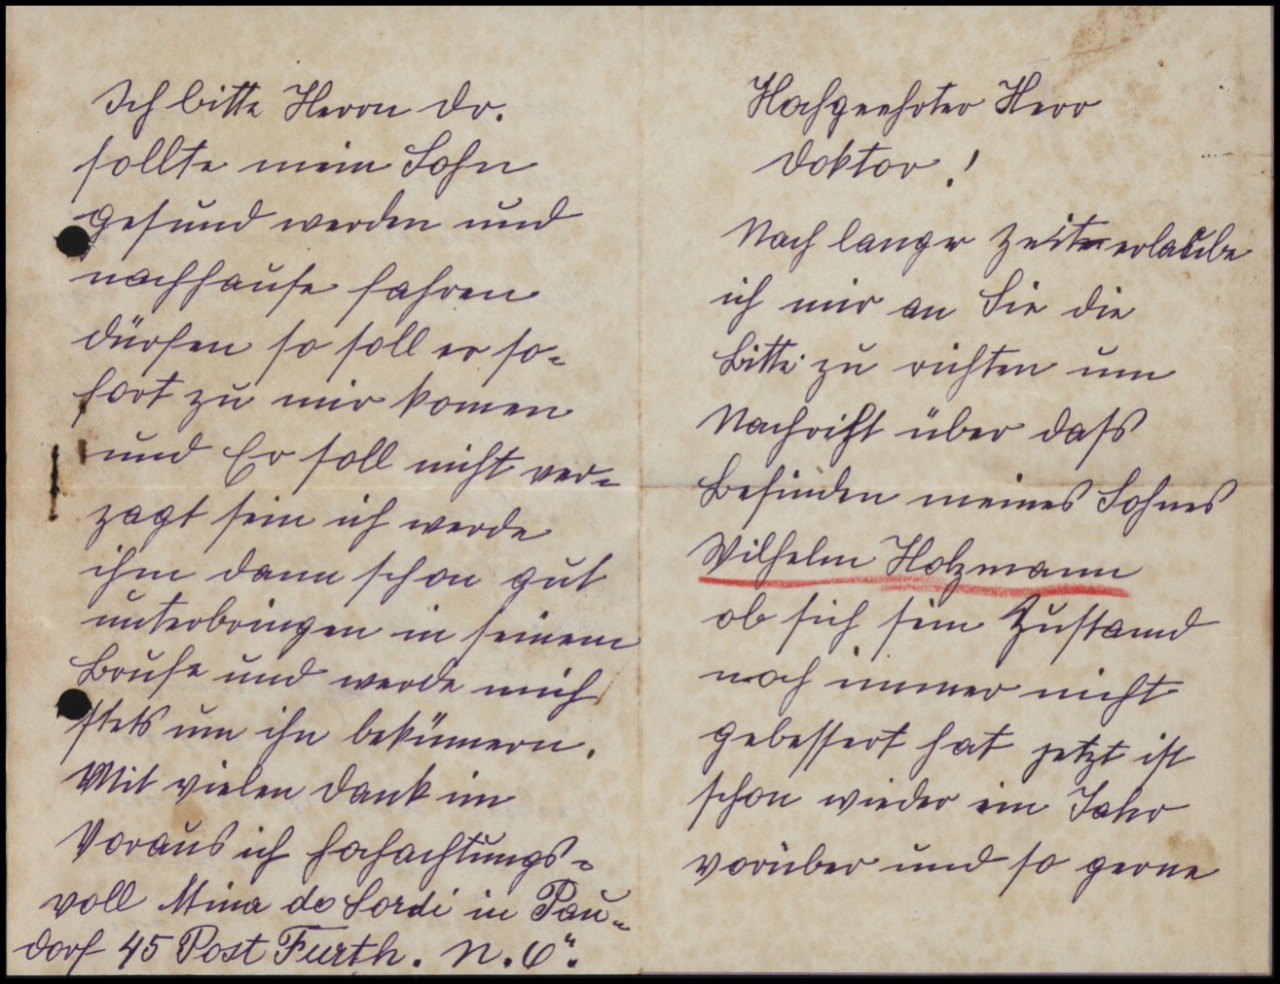 Hochgeehrter Herr
Doktor!
Nach langer Zeit erlaube
ich mir an Sie die
Bitte zu richten um
Nachricht über dass
Befinden meines Sohnes
Wilhelm Holzmann
ob sich sein Zustand
noch immer nicht
gebessert hat jetzt ist
schon wieder ein Jahr
vorüber und so gerne
Ich bitte Herrn Dr.
sollte mein Sohn
gesund werden und
nachhause fahren
dürfen so soll er so-
fort zu mir komen
und Er soll nicht ver-
zagt sein ich werde
ihm dann schon gut
unterbringen in seinem
Berufe und werde mich
stets um ihn bekümern.
Mit vielen Dank im
Voraus ich hochachtungs-
voll Mina de Sordi in Pau-
dorf 45 Post Furth. N. Ö.